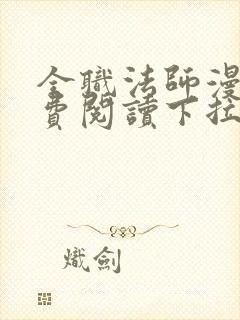 全職法師漫
費閱讀下拉
熾劍